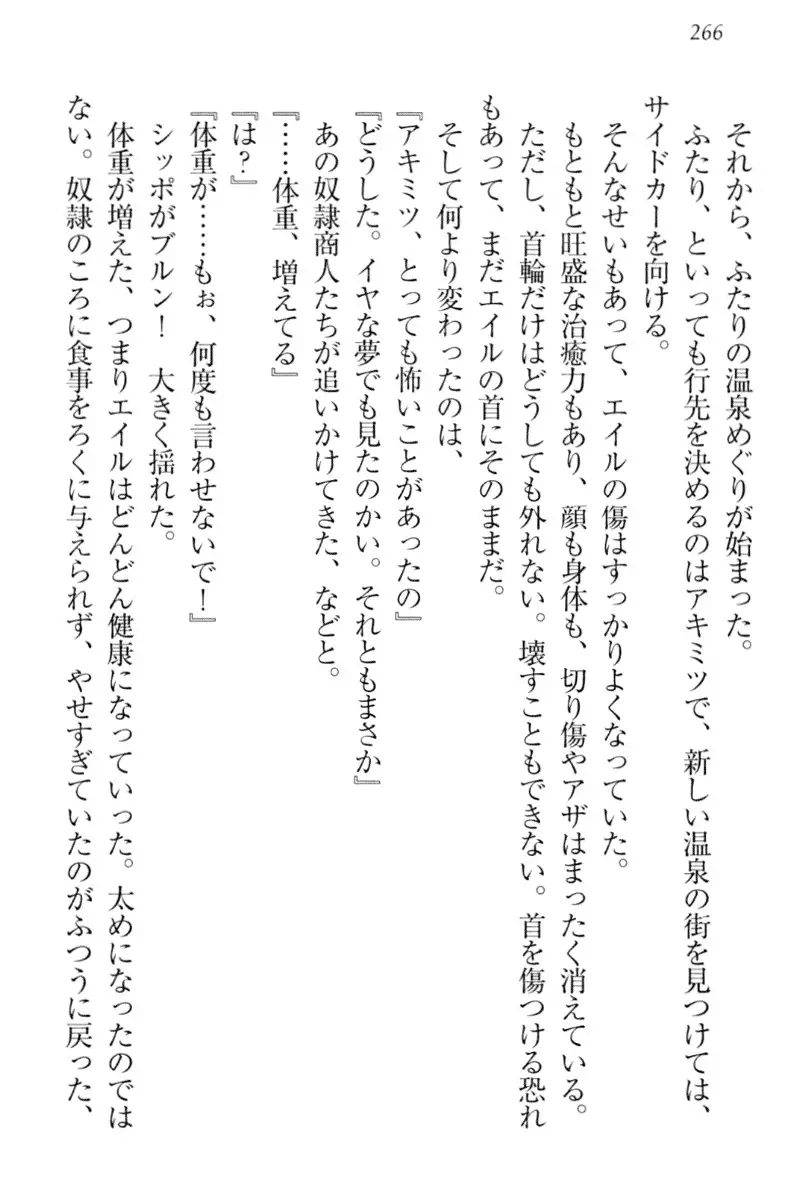 266
それから、ふたりの温泉めぐりが始まった。
ふたり、といっても行先を決めるのはアキミツで、新しい温泉の街を見つけては、
サイドカーを向ける。
そんなせいもあって、エイルの傷はすっかりよくなっていた。
もともと旺盛な治癒力もあり、顔も身体も、切り傷やアザはまったく消えている。
ただし、首輪だけはどうしても外れない。壊すこともできない。首を傷つける恐れ
もあって、まだエイルの首にそのままだ。
そして何より変わったのは、
『アキミツ、とっても怖いことがあったの』
『どうした。イヤな夢でも見たのかい。それともまさか』
あの奴隷商人たちが追いかけてきた、などと。
『……体重、増えてる』
『は?』
『体重が……もぉ、何度も言わせないで!』
シッポがブルン! 大きく揺れた。
体重が増えた、つまりエイルはどんどん健康になっていった。太めになったのでは
ない。奴隷のころに食事をろくに与えられず、やせすぎていたのがふつうに戻った、